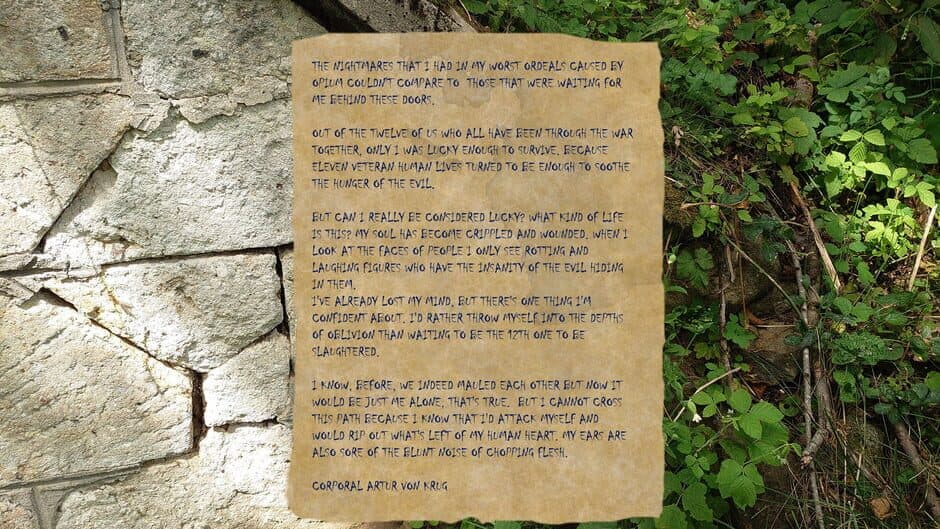 THE NIGHTMARES THAT I HAD IN MY WORST ORDEALS CAUSED BY
OPIUM COULDN'T COMPARE TO THOSE THAT WERE WAITING FOR
ME BEHIND THESE DOORS.
OUT OF THE TWELVE OF US WHO ALL HAVE BEEN THROUGH THE WAR
TOGETHER, ONLY I WAS LUCKY ENOUGH TO SURVIVE. BECAUSE
ELEVEN VETERAN HUMAN LIVES TURNED TO BE ENOUGH TO SOOTHE
THE HUNGER OF THE EVIL.
BUT CAN I REALLY BE CONSIDERED LUCKY? WHAT KIND OF LIFE
IS THIS? MY SOUL HAS BECOME CRIPPLED AND WOUNDED. WHEN I
LOOK AT THE FACES OF PEOPLE I ONLY SEE ROTTING AND
LAUGHING FIGURES WHO HAVE THE INSANITY OF THE EVIL HIDING
IN THEM.
I'VE ALREADY LOST MY MIND, BUT THERE'S ONE THING I'M
CONFIDENT ABOUT. I'D RATHER THROW MYSELF INTO THE DEPTHS
OF OBLIVION THAN WAITING TO BE THE 12TH ONE TO BE
SLAUGHTERED.
I KNOW, BEFORE, WE INDEED MAULED EACH OTHER BUT NOW IT
WOULD BE JUST ME ALONE, THAT'S TRUE. BUT I CANNOT CROSS
THIS PATH BECAUSE I KNOW THAT I'D ATTACK MYSELF AND
WOULD RIP OUT WHAT'S LEFT OF MY HUMAN HEART. MY EARS ARE
ALSO SORE OF THE BLUNT NOISE OF CHOPPING FLESH.
CORPORAL ARTUR VON KRUG